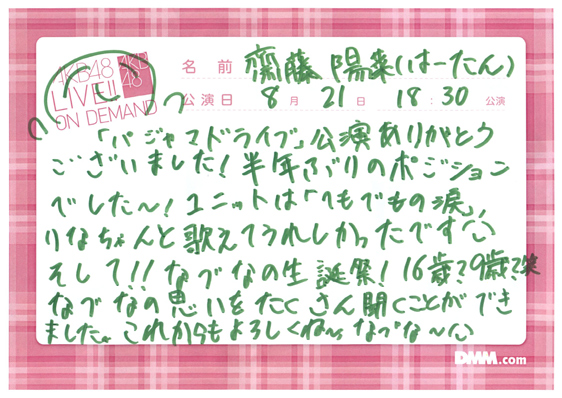 AKB48
LIVE!!
ON DEMAND
AKB
48
名前 齋藤 陽菜(はーたん)
公演日 8月21日 18:30 公演
「パジャマドライブ」公演ありがとう
ございました!半年ぶりのポジション
でした〜!ユニットは「てもでもの涙」
りなちゃんと歌えてうれしかったです
そして!!なづなの生誕祭!16歳?9歳?笑
なづなの思いをたくさん聞くことができ
ました。これからもよろしくね〜なづな〜
DMM.com